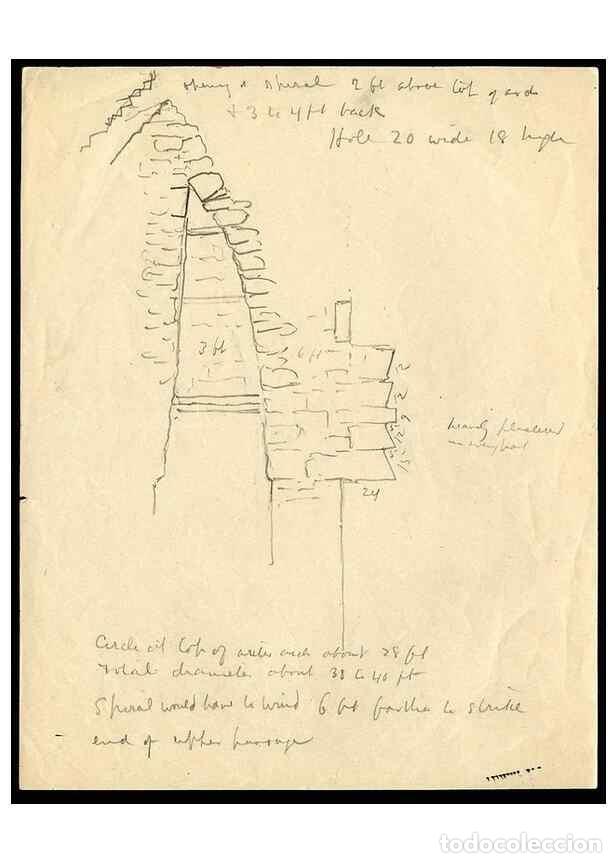 opening & spiral 2 ft above top of arch
+ 3 to 4 ft back
Hole 20 wide 18 high
3 ft
6 ft
12
12
9
12
15
24
heavily plastered
Circle at top of arch about 28 ft
total diameter about 38 to 40 ft
Spiral would have to wind 6 ft farther to strike
end of upper passage
todocoleccion